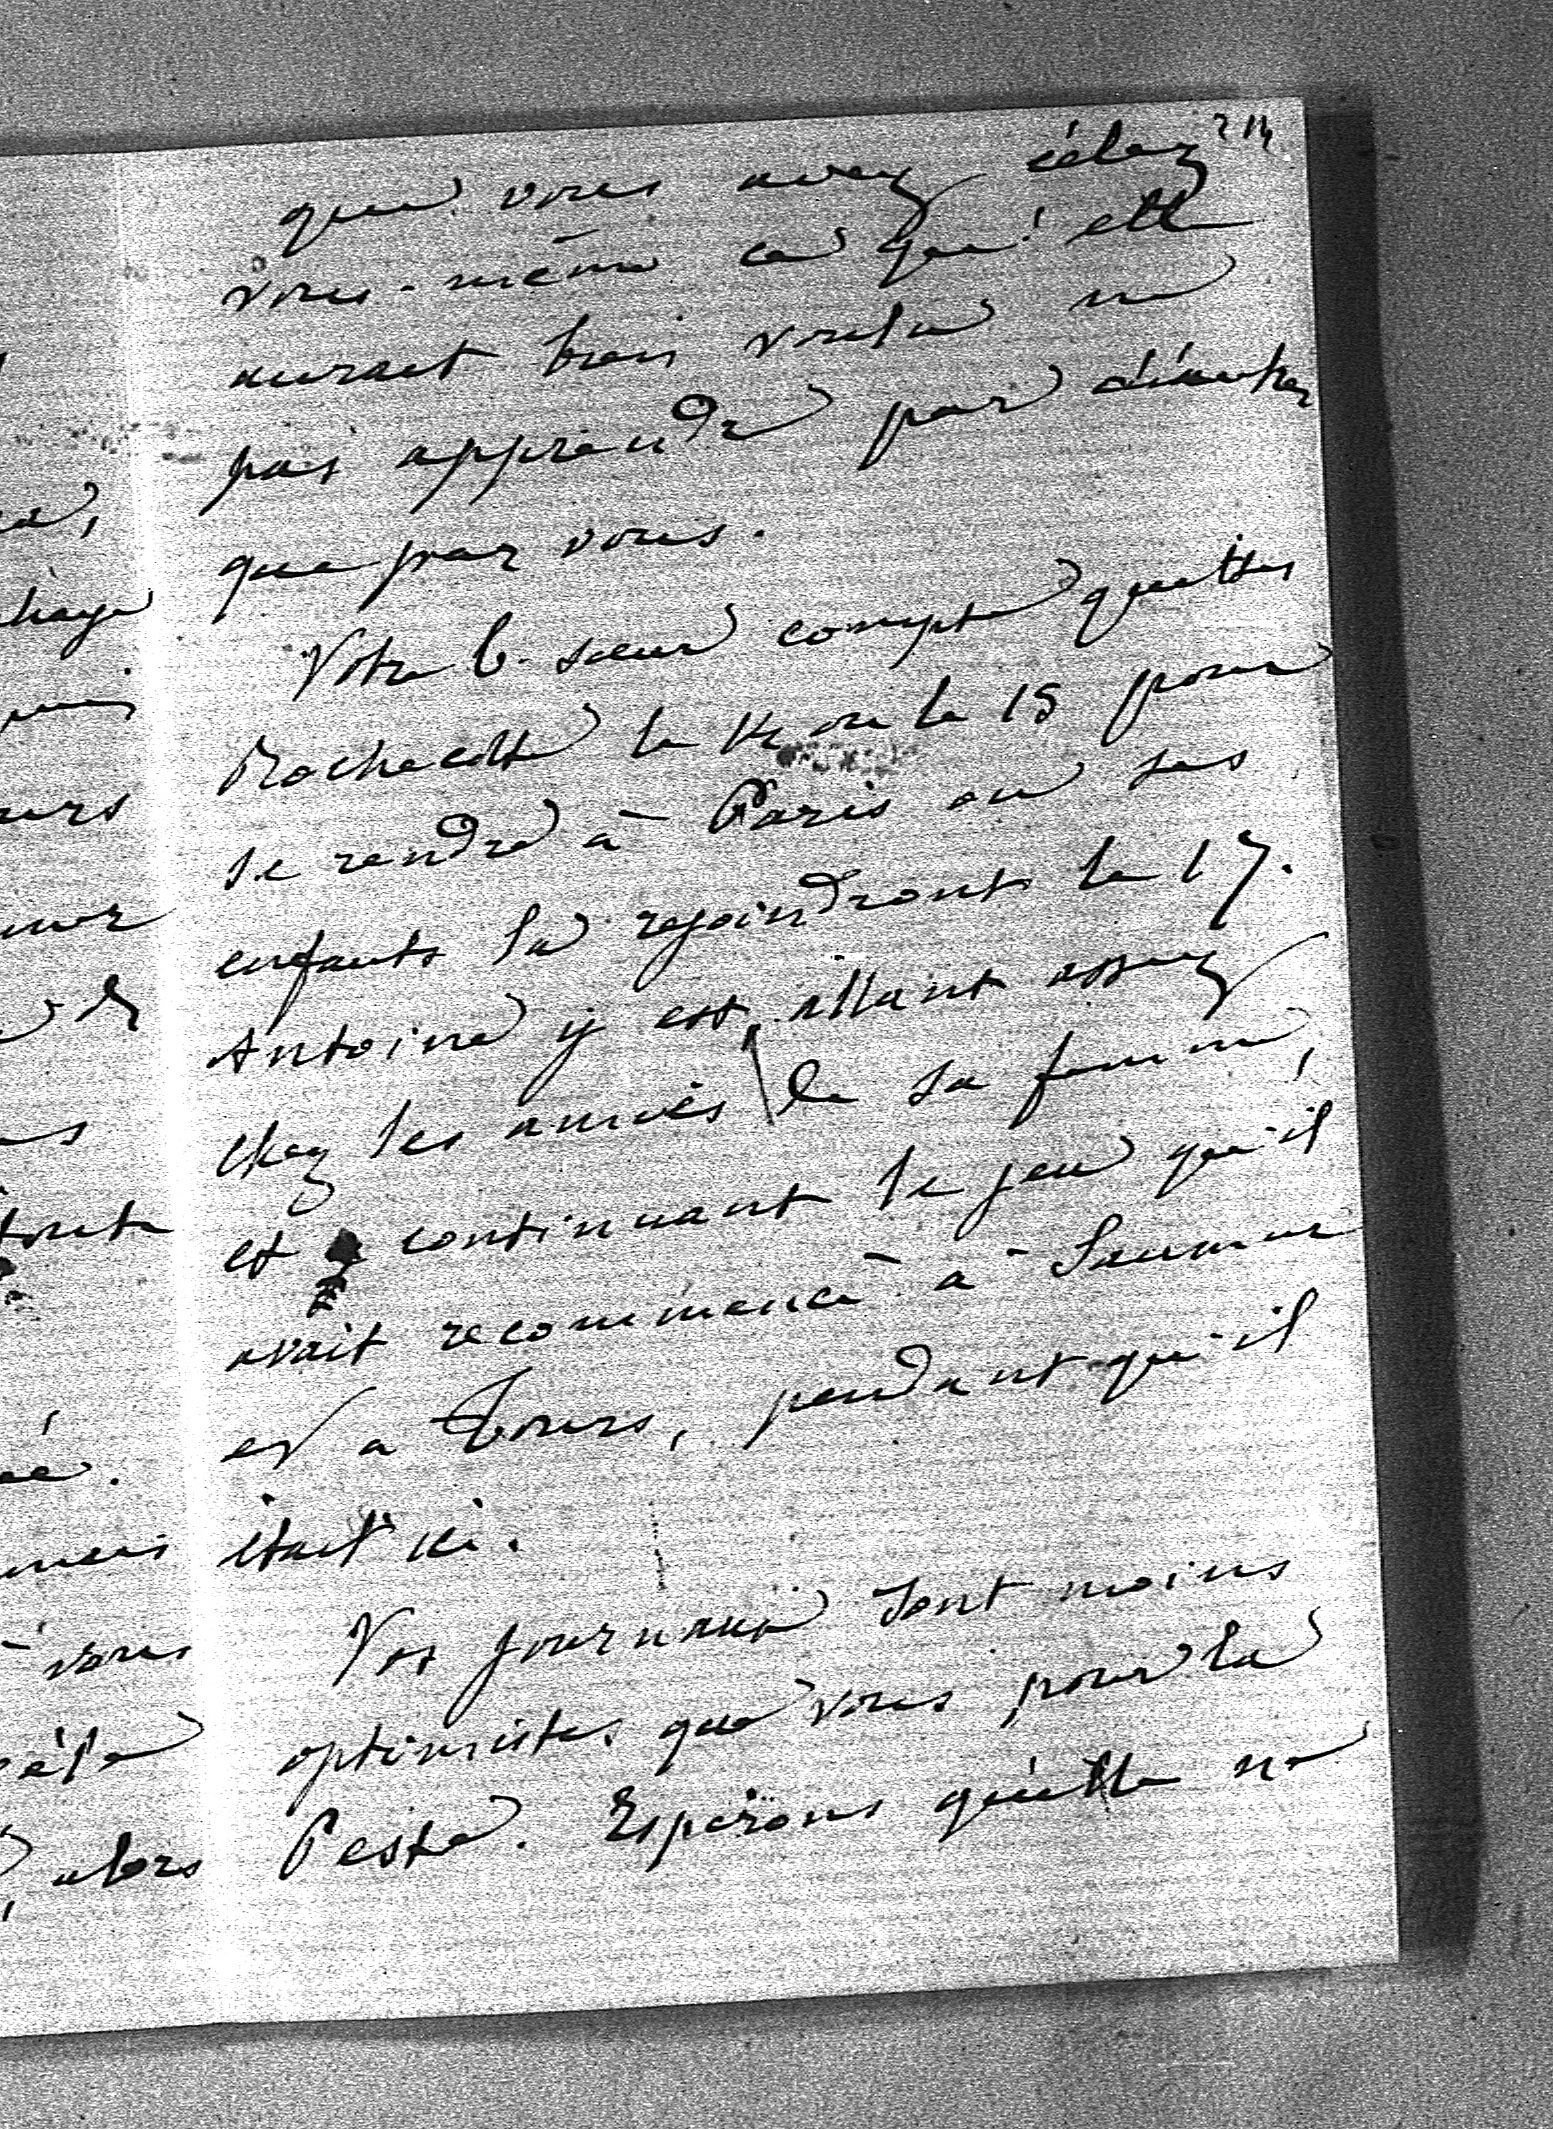 214
que vous avez
vous-même ce qu'elle
aurait bien voulu ne
pas apprendre par d'autres
que par vous.
Votre b. sœur compte quitter
Rochecotte le 14 ou le 15 pour
se rendre à Paris où ses
enfants la rejoindront le 17.
Antoine y est, allant assez
chez les amies de sa femme,
et continuant le jeu qu'il
avait recommencé à Saumur
et a Tours, pendant qu'il
était ici.
Vos journaux sont moins
optimistes que vous pour la
Peste. Espérons qu'elle ne